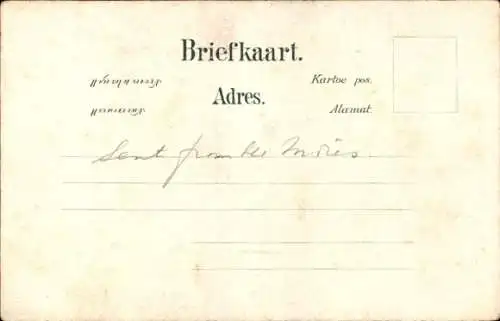 Briefkaart.
Kartoe pos.
Adres.
Alamat.
Sent from the Indies.